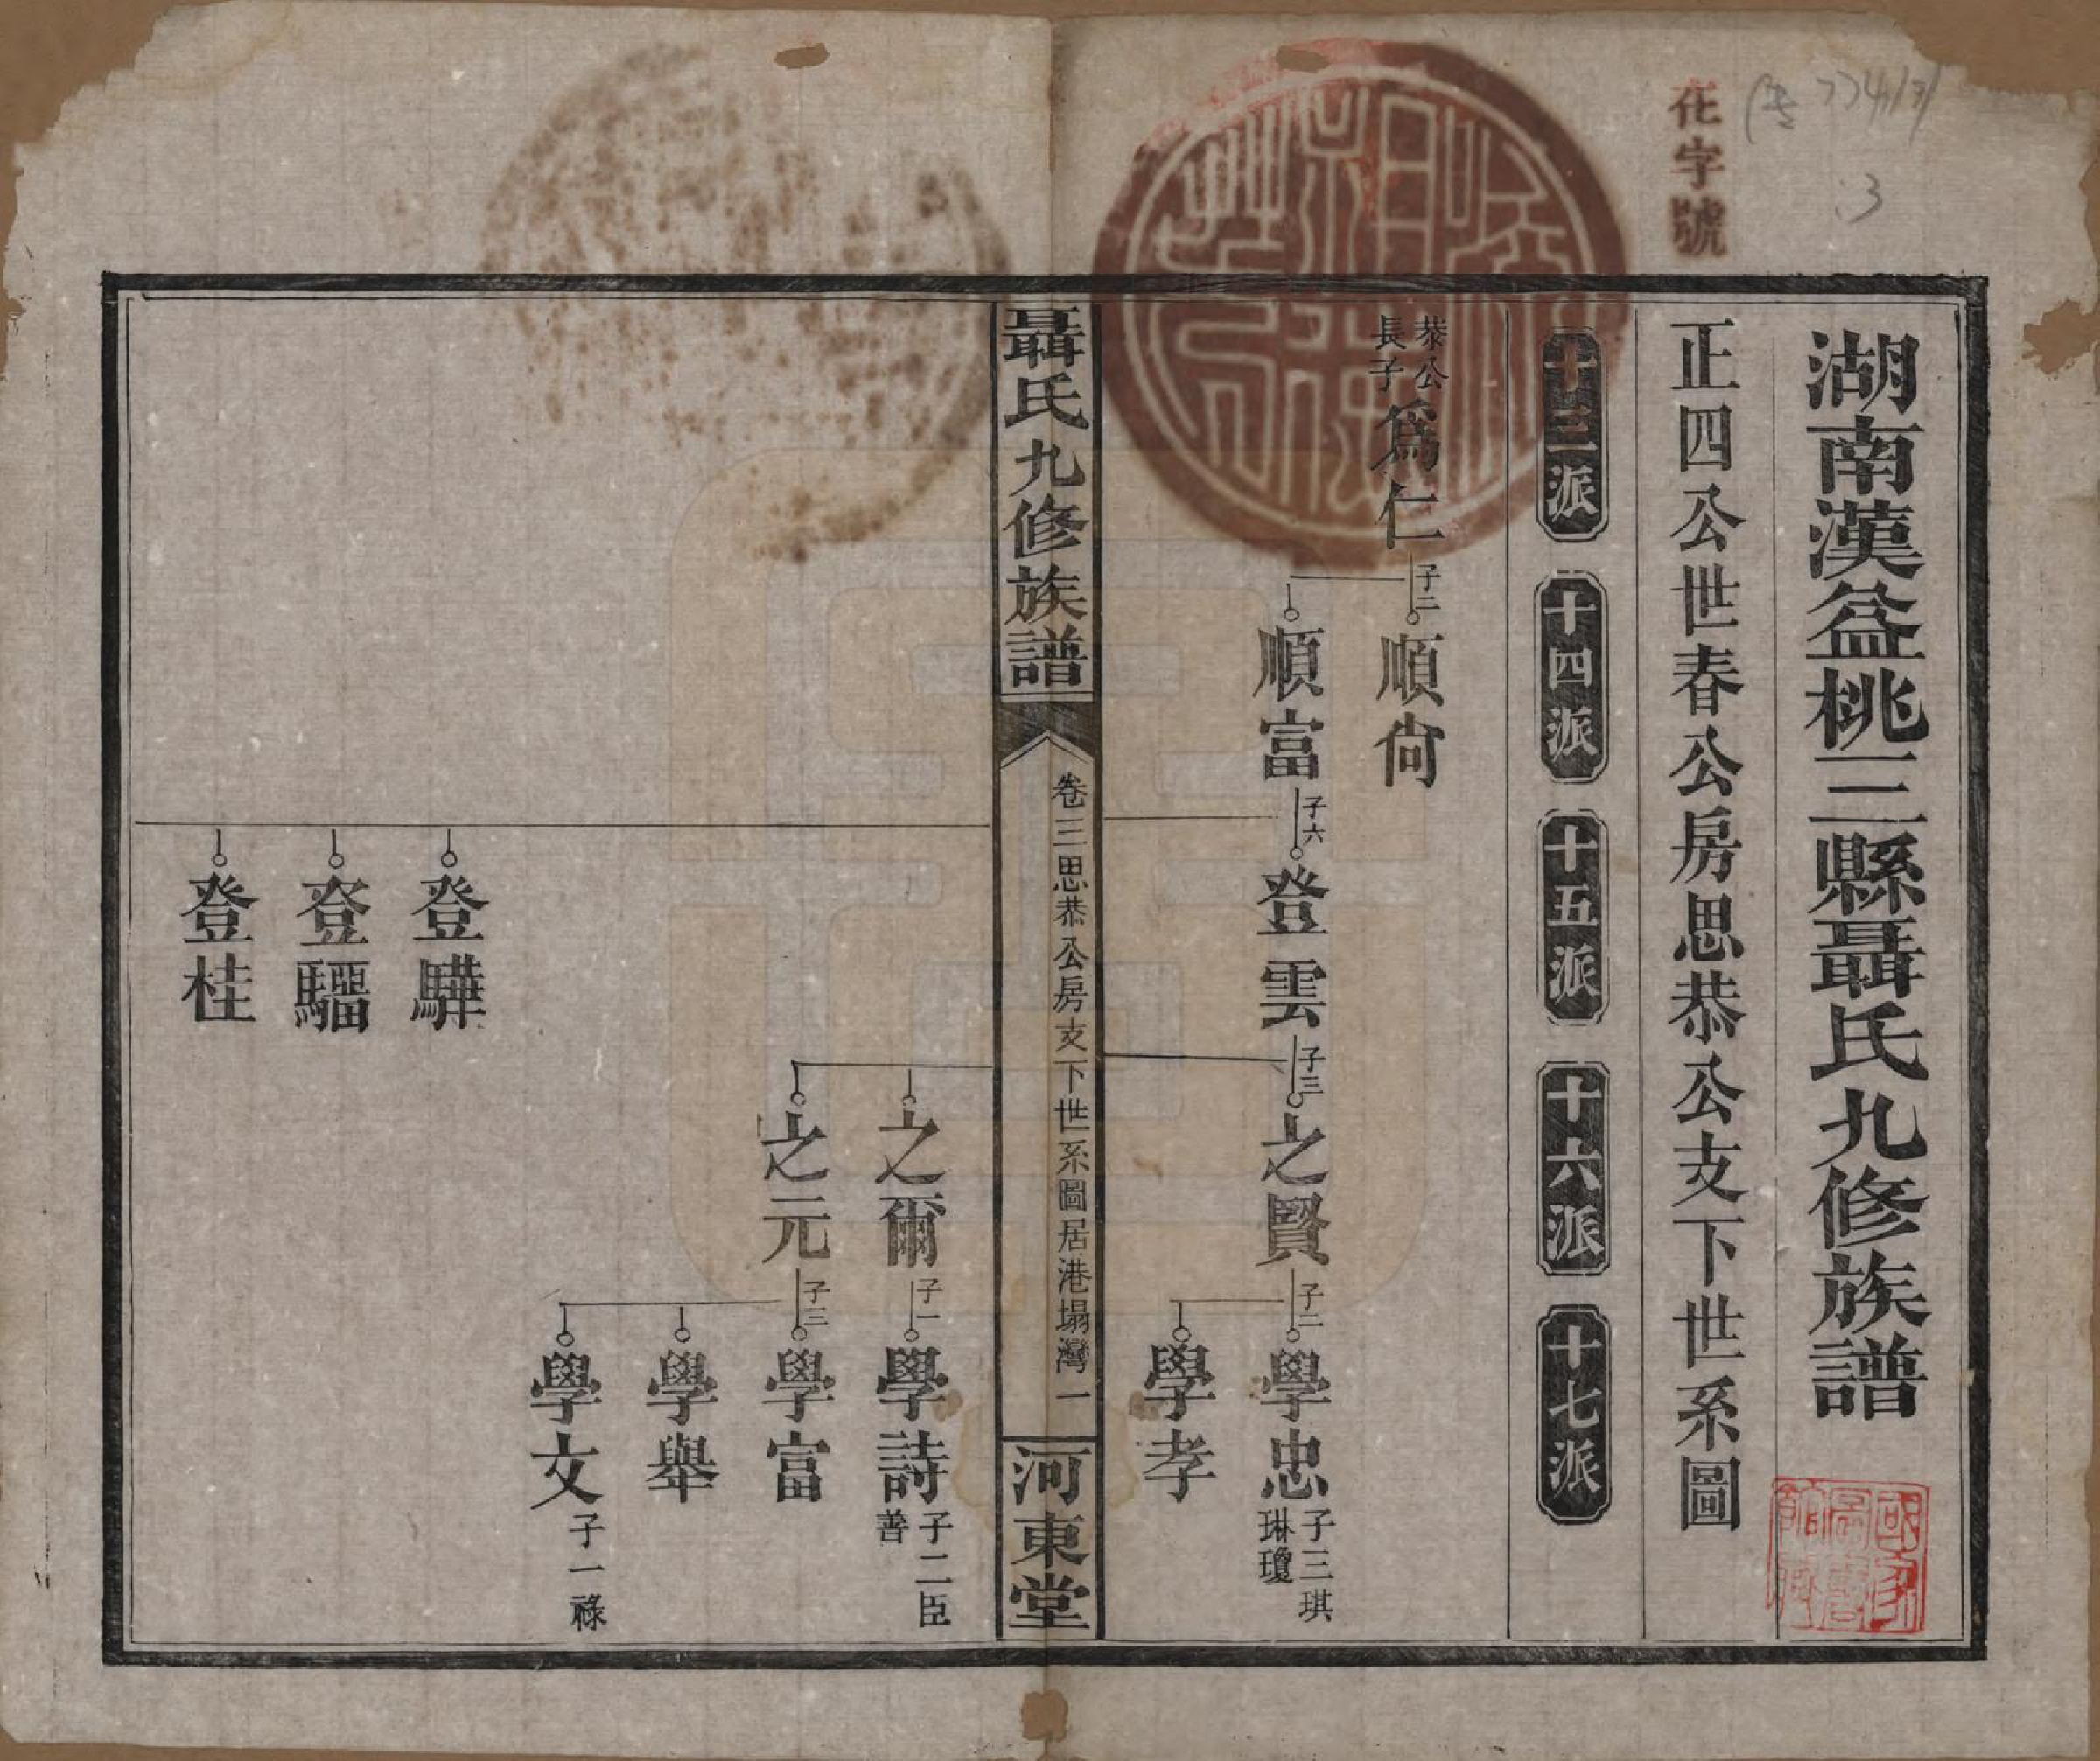 湖南漢益桃三縣聶氏九修族譜
正四公世春公房思恭公支下世系圖
十三派 十四派 十五派 十六派 十七派
恭公長子 爲仁 子二 順尙
順富 子六 登雲 子三 之賢 子二 學忠 子三琪琳瓊
學孝
聶氏九修族譜 卷三思恭公房支下世系圖居港塌灣 一 河東堂
之爾 子一 學詩 子二臣善
之元 子三 學富
學舉
學文 子一祿
登驊
登騮
登桂
花字號
3